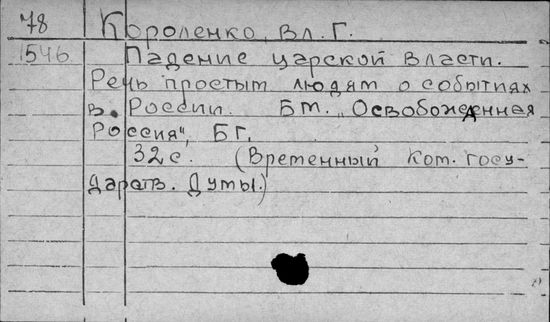 78 Короленко, Вл. Г.
1546 Падение царской власти.
Речь простым людям о событиях
в России. Бм. „Освобожденная
Россия", Б г.
32 с. (Временный Ком. госу-
дарств. Думы.)